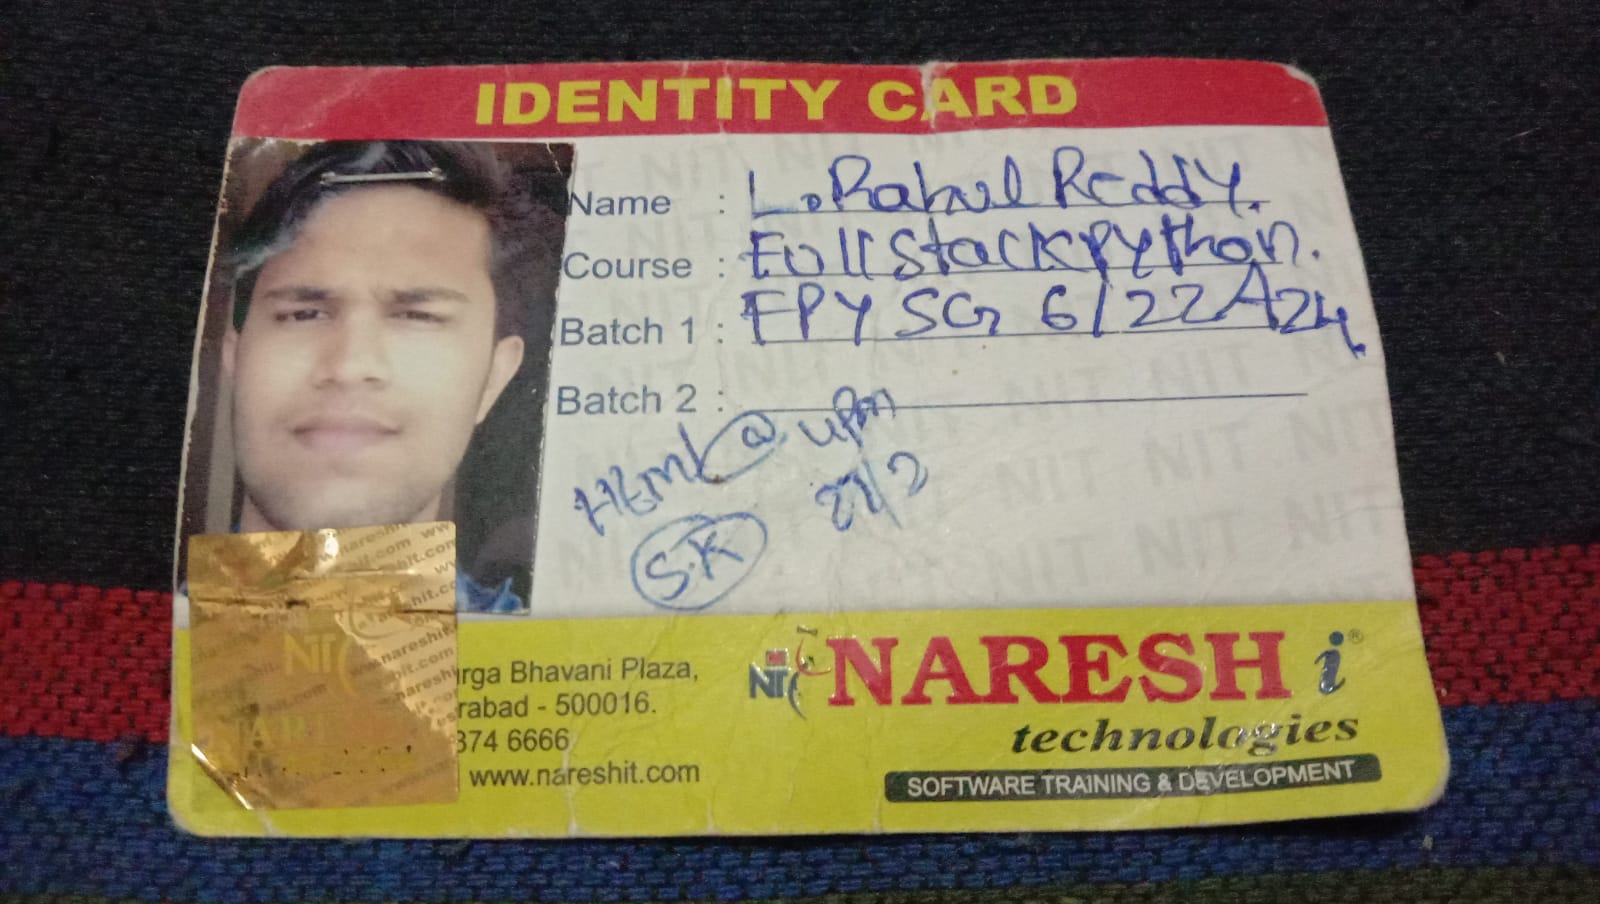 IDENTITY CARD
Name : L. Rahul Reddy.
Course : Full Stack Python.
Batch 1 : FPY SG 6/22A24
Batch 2 :
Html @ 4pm
27/2
S.K
NIT
irga Bhavani Plaza,
rabad - 500016.
374 6666
www.nareshit.com
NARESH i ®
technologies
SOFTWARE TRAINING & DEVELOPMENT